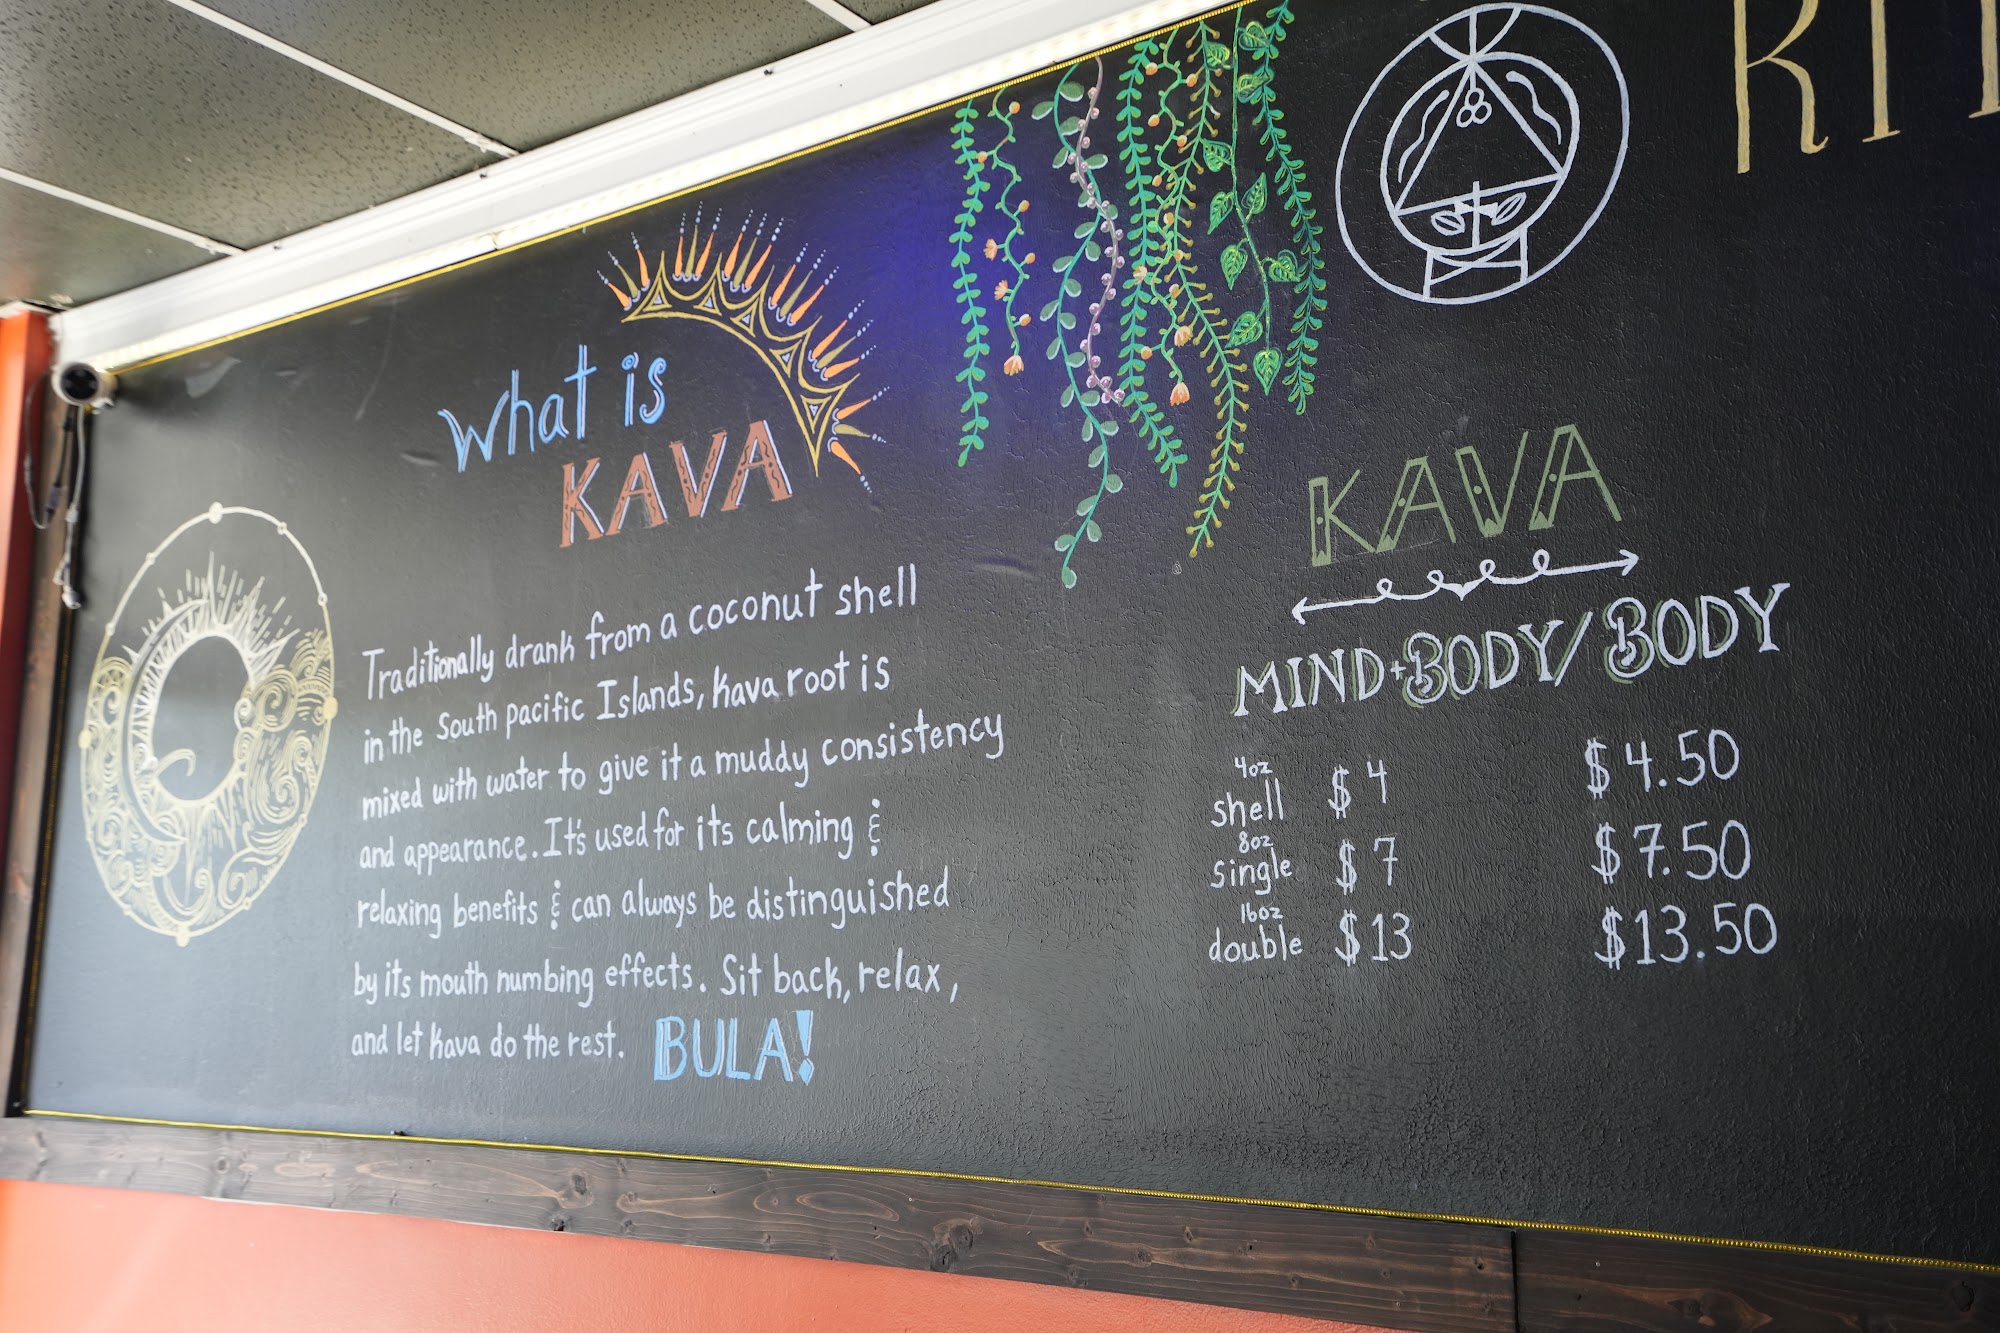 What is
KAVA
Traditionally drank from a coconut shell
in the South pacific Islands, kava root is
mixed with water to give it a muddy consistency
and appearance. It's used for its calming &
relaxing benefits & can always be distinguished
by its mouth numbing effects. Sit back, relax,
and let kava do the rest. BULA!
KAVA
MIND+BODY/BODY
4oz
shell $4 $4.50
8oz
single $7 $7.50
16oz
double $13 $13.50